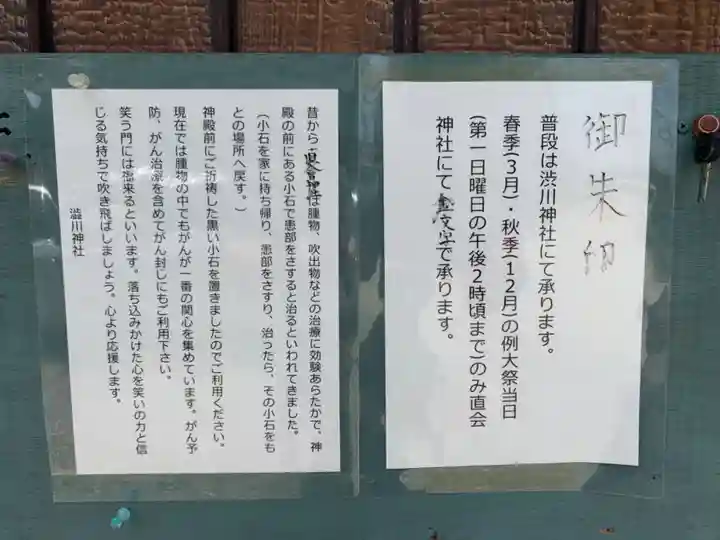 御朱印
普段は渋川神社にて承ります。
春季(3月)・秋季(12月)の例大祭当日
(第一日曜日の午後2時頃まで)のみ直会
神社にて金文字で承ります。
昔から は腫物、吹出物などの治療に効験あらたかで、神
殿の前にある小石で患部をさすると治るといわれてきました。
(小石を家に持ち帰り、患部をさすり、治ったら、その小石をも
との場所へ戻す。)
神殿前にご祈祷した黒い小石を置きましたのでご利用ください。
現在では腫物の中でもがんが一番の関心を集めています。がん予
防、がん治療を含めてがん封じにもご利用下さい。
笑う門には福来るといいます。落ち込みかけた心を笑いの力と信
じる気持ちで吹き飛ばしましょう。心より応援します。
澁川神社